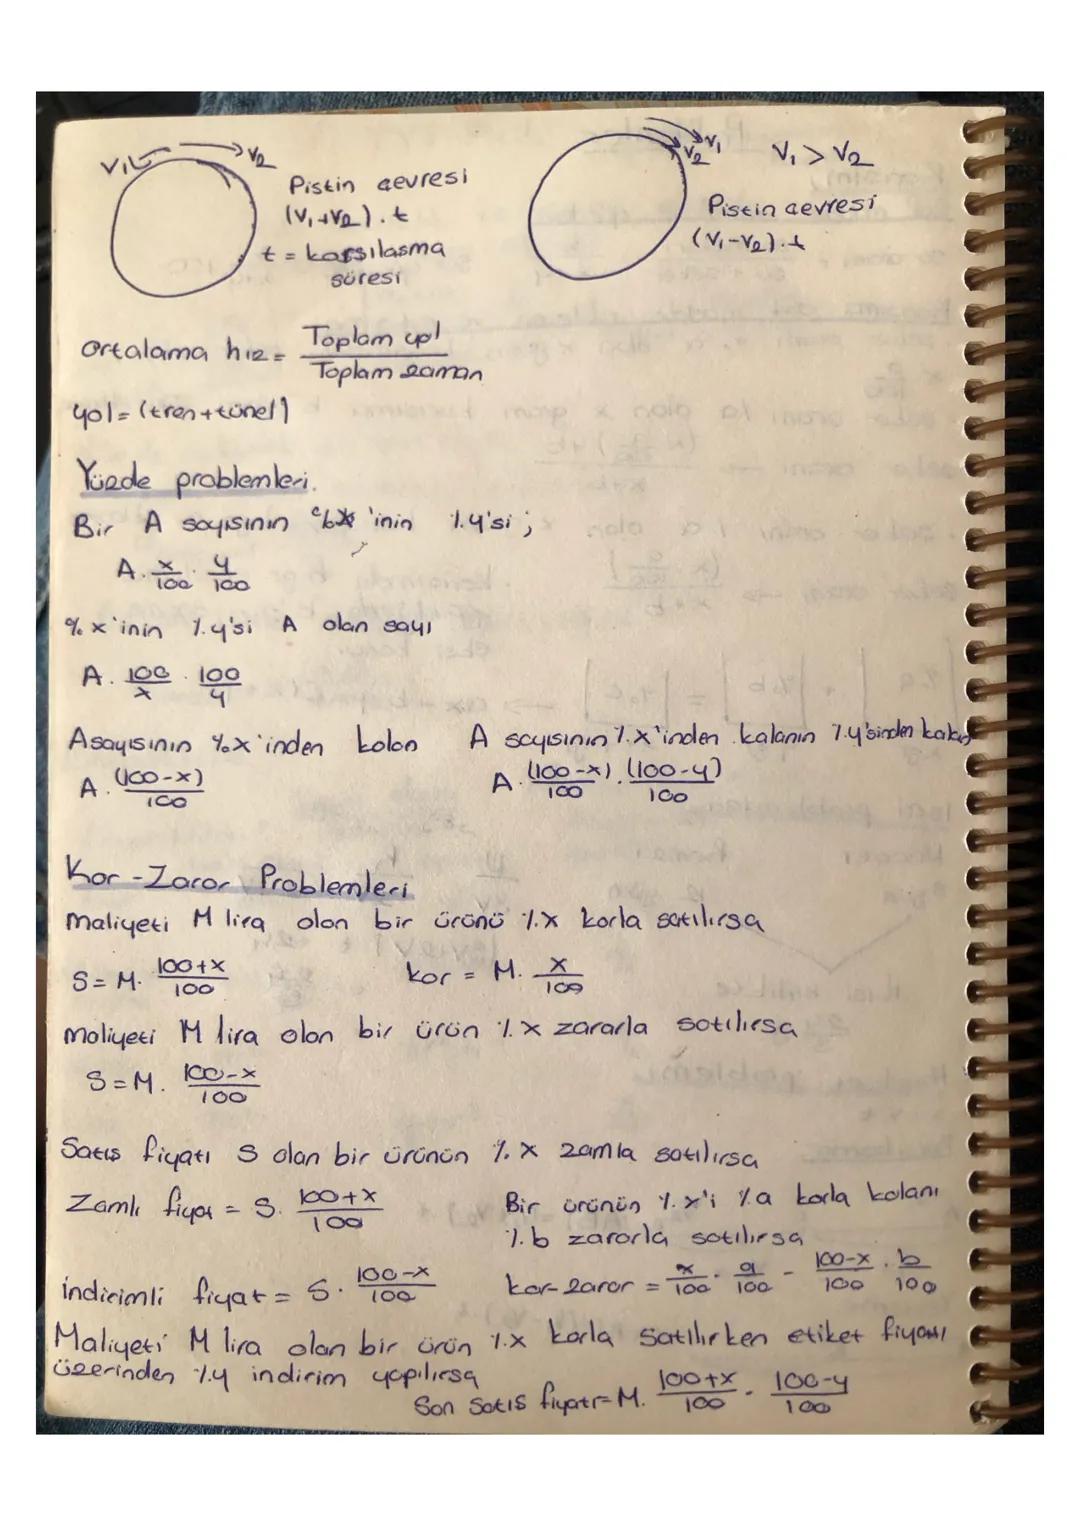 V₁ V₂
Pistin çevresi
(V₁+V₂).t
t = karşılaşma
süresi
V₂ V₁ V₁ > V₂
Pistin çevresi
(V₁-V₂).t
Ortalama hız = Toplam yol / Toplam zaman
yol = (tren+tünel)
Yüzde problemleri.
Bir A sayısının %x 'inin %y'si ;
A. x/100 . y/100
% x'inin %y'si A olan sayı
A. 100/x . 100/y
A sayısının %x'inden kalan
A. (100-x)/100
A sayısının %x'inden kalanın %y'sinden kalan
A. (100-x)/100 . (100-y)/100
Kar - Zarar Problemleri
maliyeti M lira olan bir ürünü %x karla satılırsa
S = M. 100+x/100 kar = M. x/100
maliyeti M lira olan bir ürün %x zararla satılırsa
S = M. 100-x/100
Satış fiyatı S olan bir ürünün %x zamla satılırsa
Zamlı fiyat = S. 100+x/100
Bir ürünün %x'i %a karla kalanı
%b zararla satılırsa
indirimli fiyat = S. 100-x/100
kar-zarar = x/100 . a/100 - 100-x/100 . b/100
Maliyeti M lira olan bir ürün %x karla satılırken etiket fiyatı
üzerinden %y indirim yapılırsa
Son satış fiyatı = M. 100+x/100 . 100-y/100